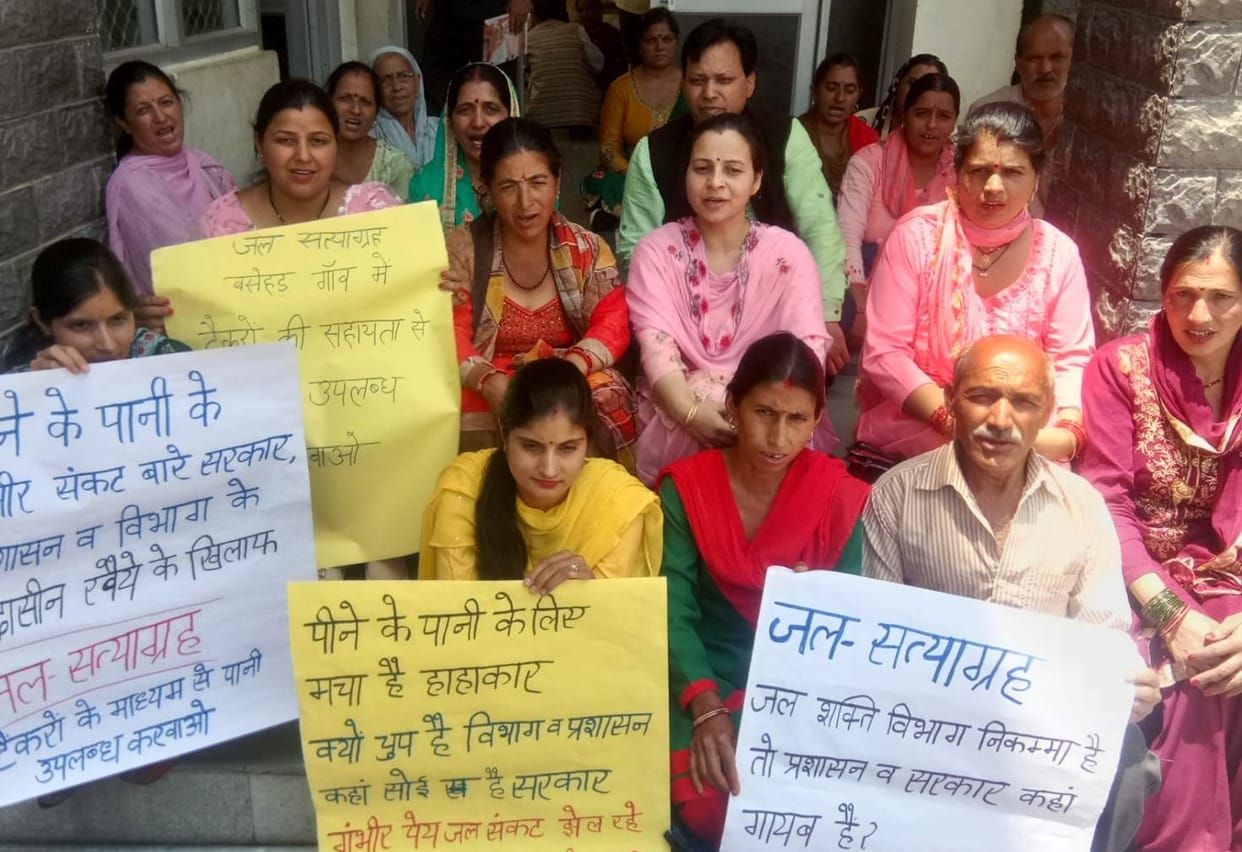 जल सत्याग्रह
बसेहड़ गाँव में
टैंकरों की सहायता से
उपलब्ध
वाओ
ने के पानी के
भीर संकट बारे सरकार,
शासन व विभाग के
दासीन रवैये के खिलाफ
जल-सत्याग्रह
टैंकरों के माध्यम से पानी
उपलब्ध करवाओ
पीने के पानी के लिए
मचा है हाहाकार
क्यों चुप है विभाग व प्रशासन
कहां सोई है सरकार
गंभीर पेयजल संकट झेल रहे
जल-सत्याग्रह
जल शक्ति विभाग निकम्मा है
तो प्रशासन व सरकार कहां
गायब हैं?